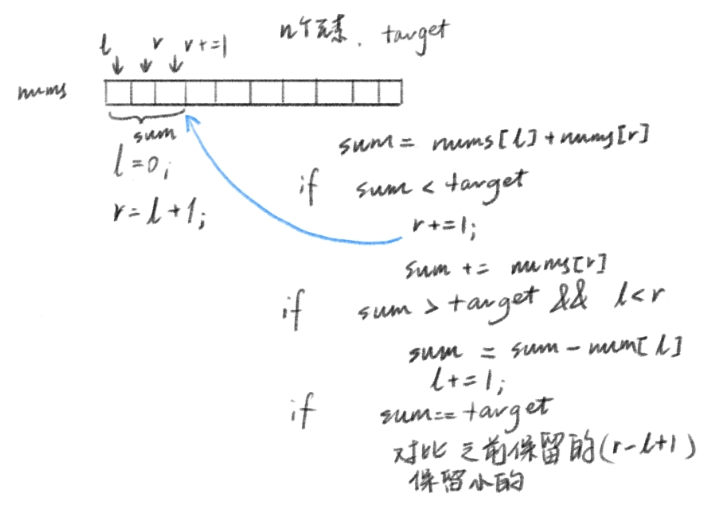 n个元素. target
l r r+=1
nums
sum
l=0;
r=l+1;
sum = nums[l]+nums[r]
if sum < target
r+=1;
sum += nums[r]
if sum > target && l<r
sum = sum-num[l]
l+=1;
if sum==target
对比之前保留的(r-l+1)
保留小的